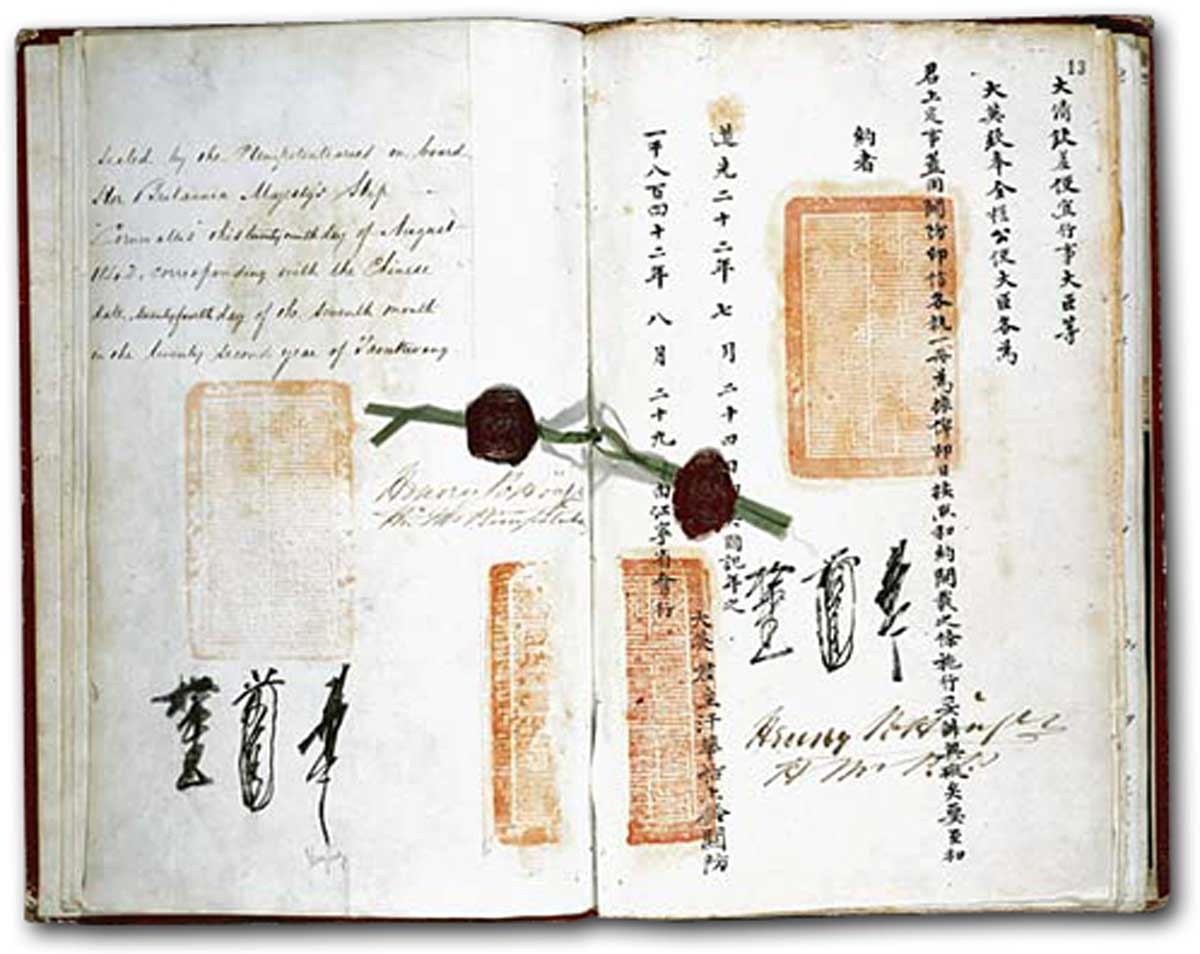 Sealed by the Plenipotentiaries on board
Her Britannic Majesty's Ship
"Cornwallis" this twenty ninth day of August
1842, corresponding with the Chinese
date, twenty fourth day of the seventh month
in the twenty second year of Taoukwang
Henry Pottinger
13
大清欽差便宜行事大臣等
大英欽奉全權公使大臣各為
君上定事蓋用關防印信各執一冊為據俾即日按照和約開載之條施行妥辦無礙矣要至和
約者
道光二十二年七月二十四日即英國記年之
一千八百四十二年八月二十九日由江寧省會行
大英君主汗華
關防
Henry Pottinger